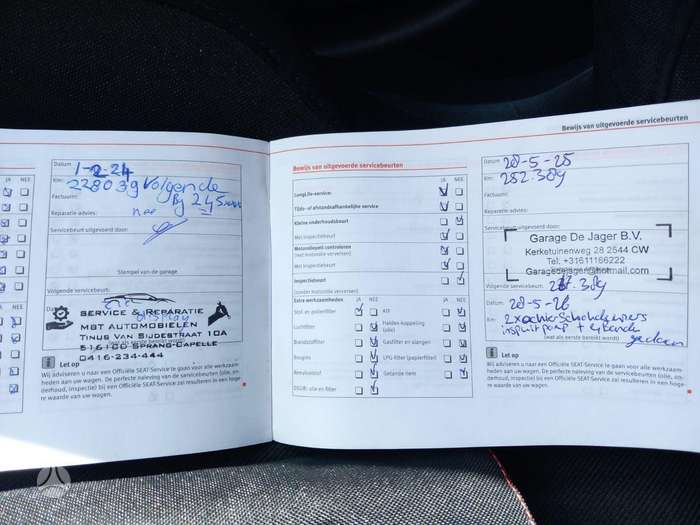 Bewijs van uitgevoerde servicebeurten
JA NEE
Datum
1-2-24
Km:
228039 Volgende
Factuurnr.
By 245
Reparatie advies:
nee
Servicebeurt uitgevoerd door:
Stempel van de garage
Volgende servicebeurt:
display
SERVICE & REPARATIE
MBT AUTOMOBIELEN
TINUS VAN SIJDESTRAAT 10A
5161CD SPRANG-CAPELLE
0416-234-444
Let op
Wij adviseren u naar een Officiële SEAT-Service te gaan voor alle werkzaam-
heden aan uw wagen. De perfecte naleving van de servicebeurten (olie, on-
derhoud, inspectie) bij een Officiële SEAT-Service zal resulteren in een hoge-
re waarde van uw wagen.
Bewijs van uitgevoerde servicebeurten
JA NEE
LongLife-service:
Tijds- of afstandsafhankelijke service
Kleine onderhoudsbeurt
Met inspectiebeurt
Motoroliepeil controleren
(niet motorolie verversen)
Met inspectiebeurt
Inspectiebeurt
(zonder motorolie verversen)
Extra werkzaamheden JA NEE JA NEE
Stof- en pollenfilter
Luchtfilter
Brandstoffilter
Bougies
Remvloeistof
DSG®: olie en filter
Kit
Haldex-koppeling
(olie)
Gasfilter en slangen
LPG-filter (papierfilter)
Getande riem
Datum
20-5-25
Km:
252.389
Factuurnr.
Reparatie advies:
Servicebeurt uitgevoerd door:
Garage De Jager B.V.
Kerketuinenweg 28 2544 CW
Tel: +31611166222
Garagedejager@hotmail.com
Volgende servicebeurt:
Datum:
20-5-26
Km:
2x achter Schokbrekers
(wat als eerste bereikt wordt)
gedaan
Let op
Wij adviseren u naar een Officiële SEAT-Service te gaan voor alle werkzaam-
heden aan uw wagen. De perfecte naleving van de servicebeurten (olie, on-
derhoud, inspectie) bij een Officiële SEAT-Service zal resulteren in een hoge-
re waarde van uw wagen.